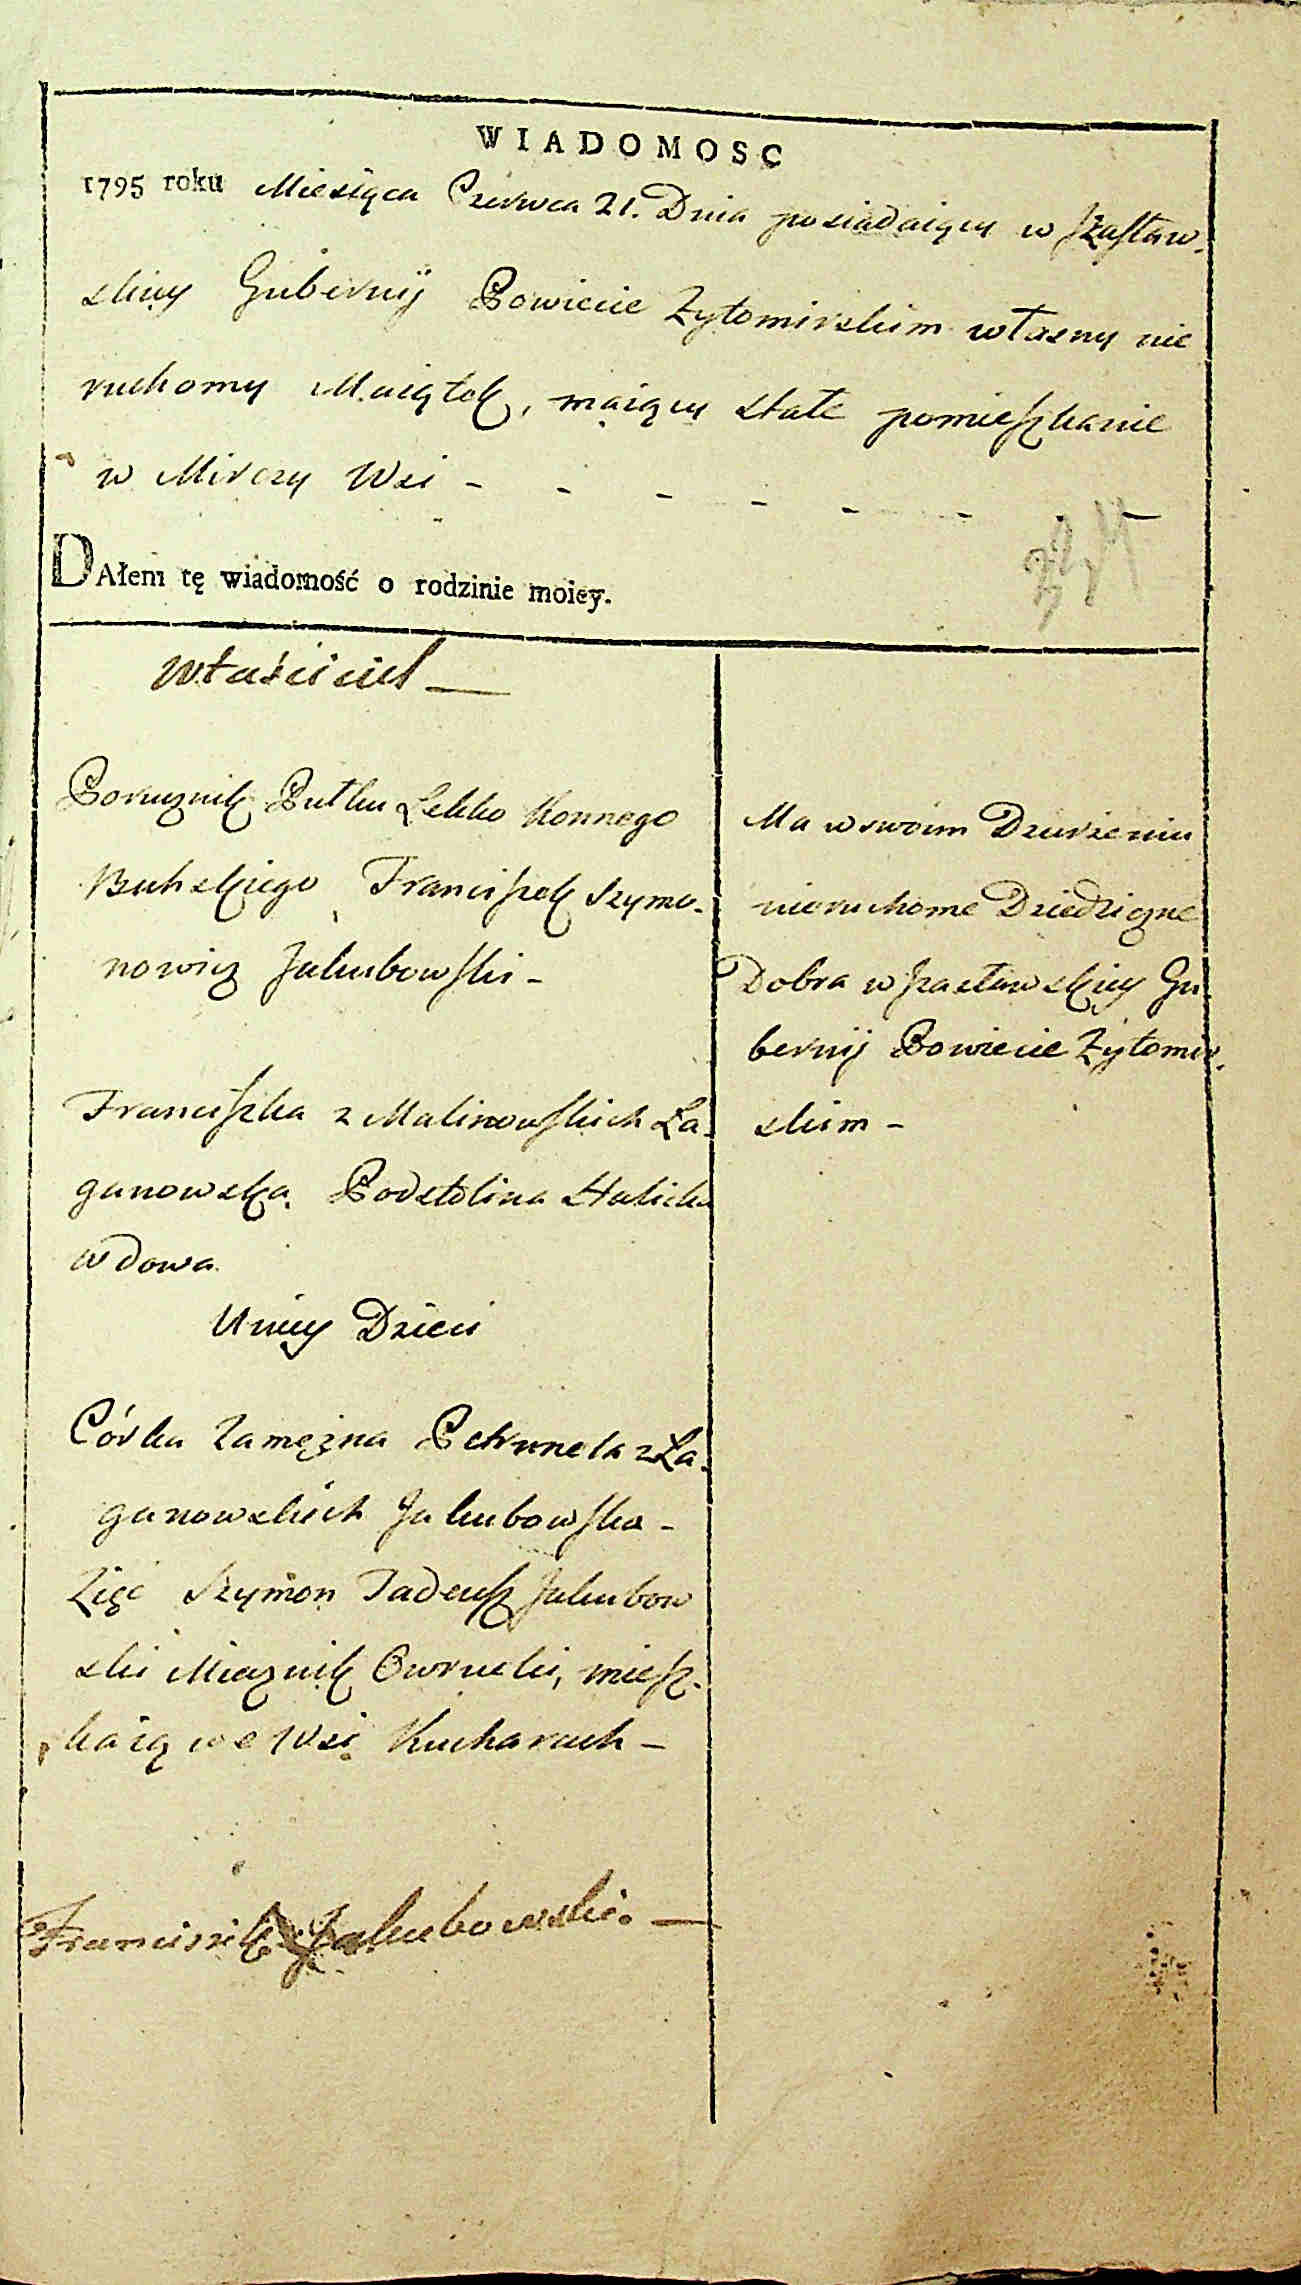 WIADOMOSC
1795 roku Miesiąca Czerwca 21. Dnia posiadaiący w Jzasław-
skiey Gubernij Powiecie Zytomirskim własny nie
ruchomy Maiątek, maiący stałe pomieszkanie
w Mirczy Wsi - - - - - - - -
DAłem tę wiadomość o rodzinie moiey.
Właściciel —
Porucznik Pułku Lekko Konnego
Buhskiego Franciszek Szymo-
nowicz Jakubowski -
Franciszka z Malinowskich Ła-
ganowska Podstolina Halicka
wdowa
U niey Dzieci
Córka Zamężna Petrunela z Ła-
ganowskich Jakubowska -
Zięć Szymon Tadeusz Jakubow
ski Miecznik Owrucki, miesz-
kaią we Wsi Kucharach -
Franciszek Jakubowski. —
Ma w swoim Dzierżeniu
nieruchome Dziedziczne
Dobra w Jzasławskiey Gu
bernij Powiecie Zytomir-
skim -